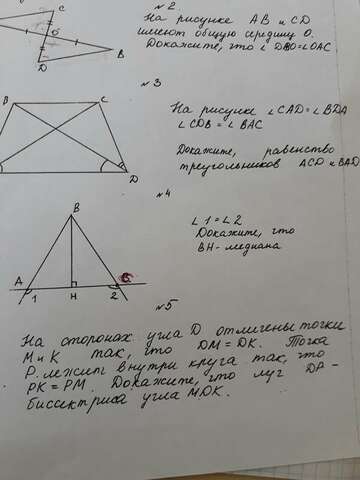 № 2
C
На рисунке AB и CD
имеют общую середину O.
Докажите, что ∠DBO=∠OAC
O
B
D
№ 3
B
C
На рисунке ∠CAD=∠BDA
∠CDB=∠BAC
Докажите, равенство
треугольников ACD и BAD
D
№ 4
B
∠1=∠2
Докажите, что
BH-медиана
A
1
H
2
C
№ 5
На сторонах угла D отмечены точки
M и K так, что DM=DK. Точка
P лежит внутри круга так, что
PK=PM. Докажите, что луч DP-
биссектриса угла MDK.